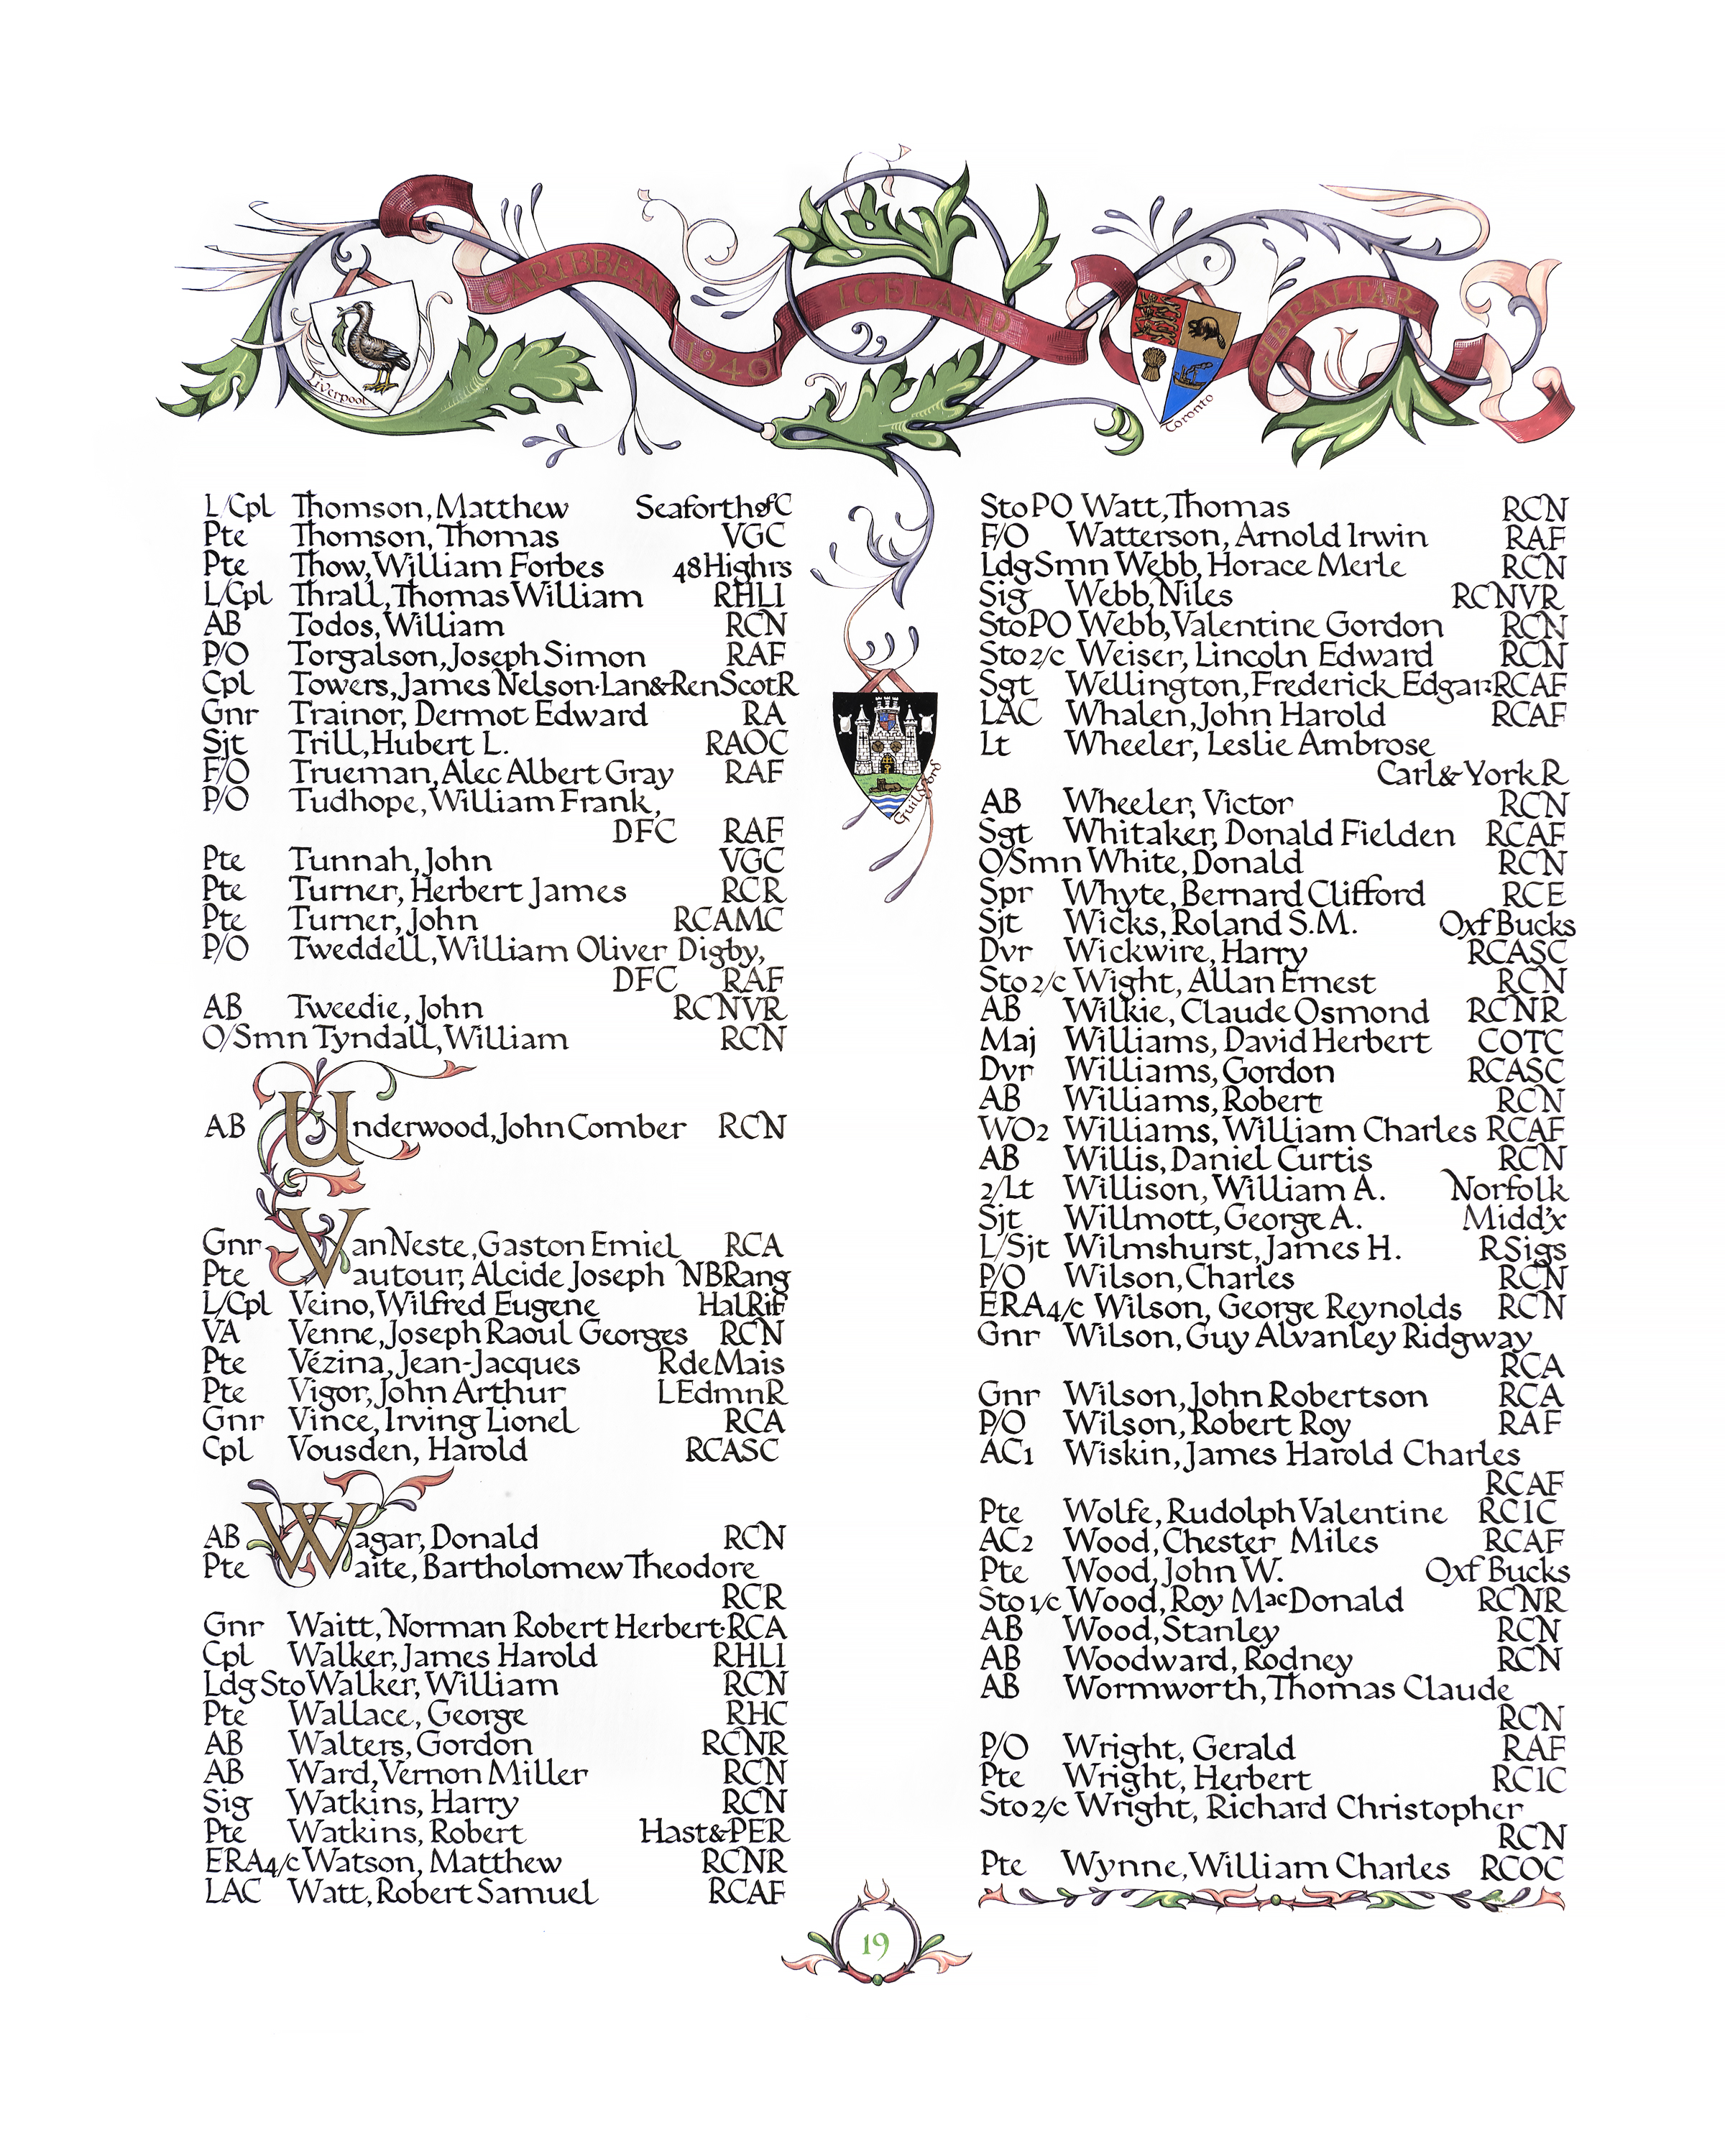 CARIBBEAN 1940 ICELAND GIBRALTAR
Liverpool
Toronto
Guildford
L/Cpl Thomson, Matthew SeaforthofC
Pte Thomson, Thomas VGC
Pte Thow, William Forbes 48Highrs
L/Cpl Thrall, Thomas William RHLI
AB Todos, William RCN
P/O Torgalson, Joseph Simon RAF
Cpl Towers, James Nelson·Lan&RenScotR
Gnr Trainor, Dermot Edward RA
Sjt Trill, Hubert L. RAOC
F/O Trueman, Alec Albert Gray RAF
P/O Tudhope, William Frank,
DFC RAF
Pte Tunnah, John VGC
Pte Turner, Herbert James RCR
Pte Turner, John RCAMC
P/O Tweddell, William Oliver Digby,
DFC RAF
AB Tweedie, John RCNVR
O/Smn Tyndall, William RCN
AB Underwood, John Comber RCN
Gnr VanNeste, Gaston Emiel RCA
Pte Vautour, Alcide Joseph NBRang
L/Cpl Veino, Wilfred Eugene HalRif
VA Venne, Joseph Raoul Georges RCN
Pte Vézina, Jean-Jacques RdeMais
Pte Vigor, John Arthur LEdmnR
Gnr Vince, Irving Lionel RCA
Cpl Vousden, Harold RCASC
AB Wagar, Donald RCN
Pte Waite, Bartholomew Theodore
RCR
Gnr Waitt, Norman Robert Herbert·RCA
Cpl Walker, James Harold RHLI
Ldg Sto Walker, William RCN
Pte Wallace, George RHC
AB Walters, Gordon RCNR
AB Ward, Vernon Miller RCN
Sig Watkins, Harry RCN
Pte Watkins, Robert Hast&PER
ERA4/c Watson, Matthew RCNR
LAC Watt, Robert Samuel RCAF
Sto PO Watt, Thomas RCN
F/O Watterson, Arnold Irwin RAF
Ldg Smn Webb, Horace Merle RCN
Sig Webb, Niles RCNVR
Sto PO Webb, Valentine Gordon RCN
Sto 2/c Weiser, Lincoln Edward RCN
Sgt Wellington, Frederick Edgar·RCAF
LAC Whalen, John Harold RCAF
Lt Wheeler, Leslie Ambrose
Carl&YorkR
AB Wheeler, Victor RCN
Sgt Whitaker, Donald Fielden RCAF
O/Smn White, Donald RCN
Spr Whyte, Bernard Clifford RCE
Sjt Wicks, Roland S.M. Oxf Bucks
Dvr Wickwire, Harry RCASC
Sto 2/c Wight, Allan Ernest RCN
AB Wilkie, Claude Osmond RCNR
Maj Williams, David Herbert COTC
Dvr Williams, Gordon RCASC
AB Williams, Robert RCN
WO2 Williams, William Charles RCAF
AB Willis, Daniel Curtis RCN
2/Lt Willison, William A. Norfolk
Sjt Willmott, George A. Midd'x
L/Sjt Wilmshurst, James H. RSigs
P/O Wilson, Charles RCN
ERA4/c Wilson, George Reynolds RCN
Gnr Wilson, Guy Alvanley Ridgway
RCA
Gnr Wilson, John Robertson RCA
P/O Wilson, Robert Roy RAF
AC1 Wiskin, James Harold Charles
RCAF
Pte Wolfe, Rudolph Valentine RCIC
AC2 Wood, Chester Miles RCAF
Pte Wood, John W. Oxf Bucks
Sto 1/c Wood, Roy MacDonald RCNR
AB Wood, Stanley RCN
AB Woodward, Rodney RCN
AB Wormworth, Thomas Claude
RCN
P/O Wright, Gerald RAF
Pte Wright, Herbert RCIC
Sto 2/c Wright, Richard Christopher
RCN
Pte Wynne, William Charles RCOC
19